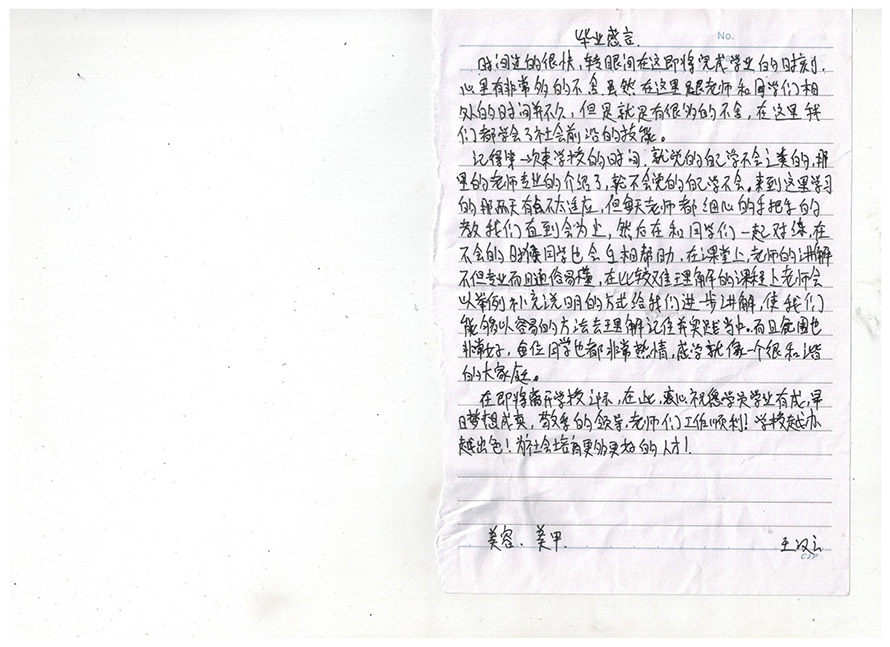 毕业感言.
No.
时间过的很快,转眼间在这即将完成学业的时刻,
心里有非常多的不舍.虽然在这里跟老师和同学们相
处的时间并不久,但是就是有很多的不舍,在这里我
们都学会了社会前沿的技能。
记得第一次来学校的时间.就觉的自己学不会这类的,那
里的老师专业的介绍了,就不会觉的自己学不会。来到这里学习
的那两天有些不太适应,但每天老师都细心的手把手的
教我们直到会为止,然后在和同学们一起对练,在
不会的时候同学也会互相帮助,在课堂上,老师的讲解
不但专业而且通俗易懂,在比较难理解的课程上老师会
以举例补充说明的方式给我们进步讲解,使我们
能够以容易的方法去理解记住并实践当中。而且氛围也
非常好,每位同学也都非常热情,感学就像一个很和谐
的大家庭。
在即将离开学校之际,在此,衷心祝愿学员学业有成,早
日梦想成真,敬爱的领导,老师们工作顺利!学校越办
越出色!为社会培育更多更好的人才!
美容.美甲.
王汉云